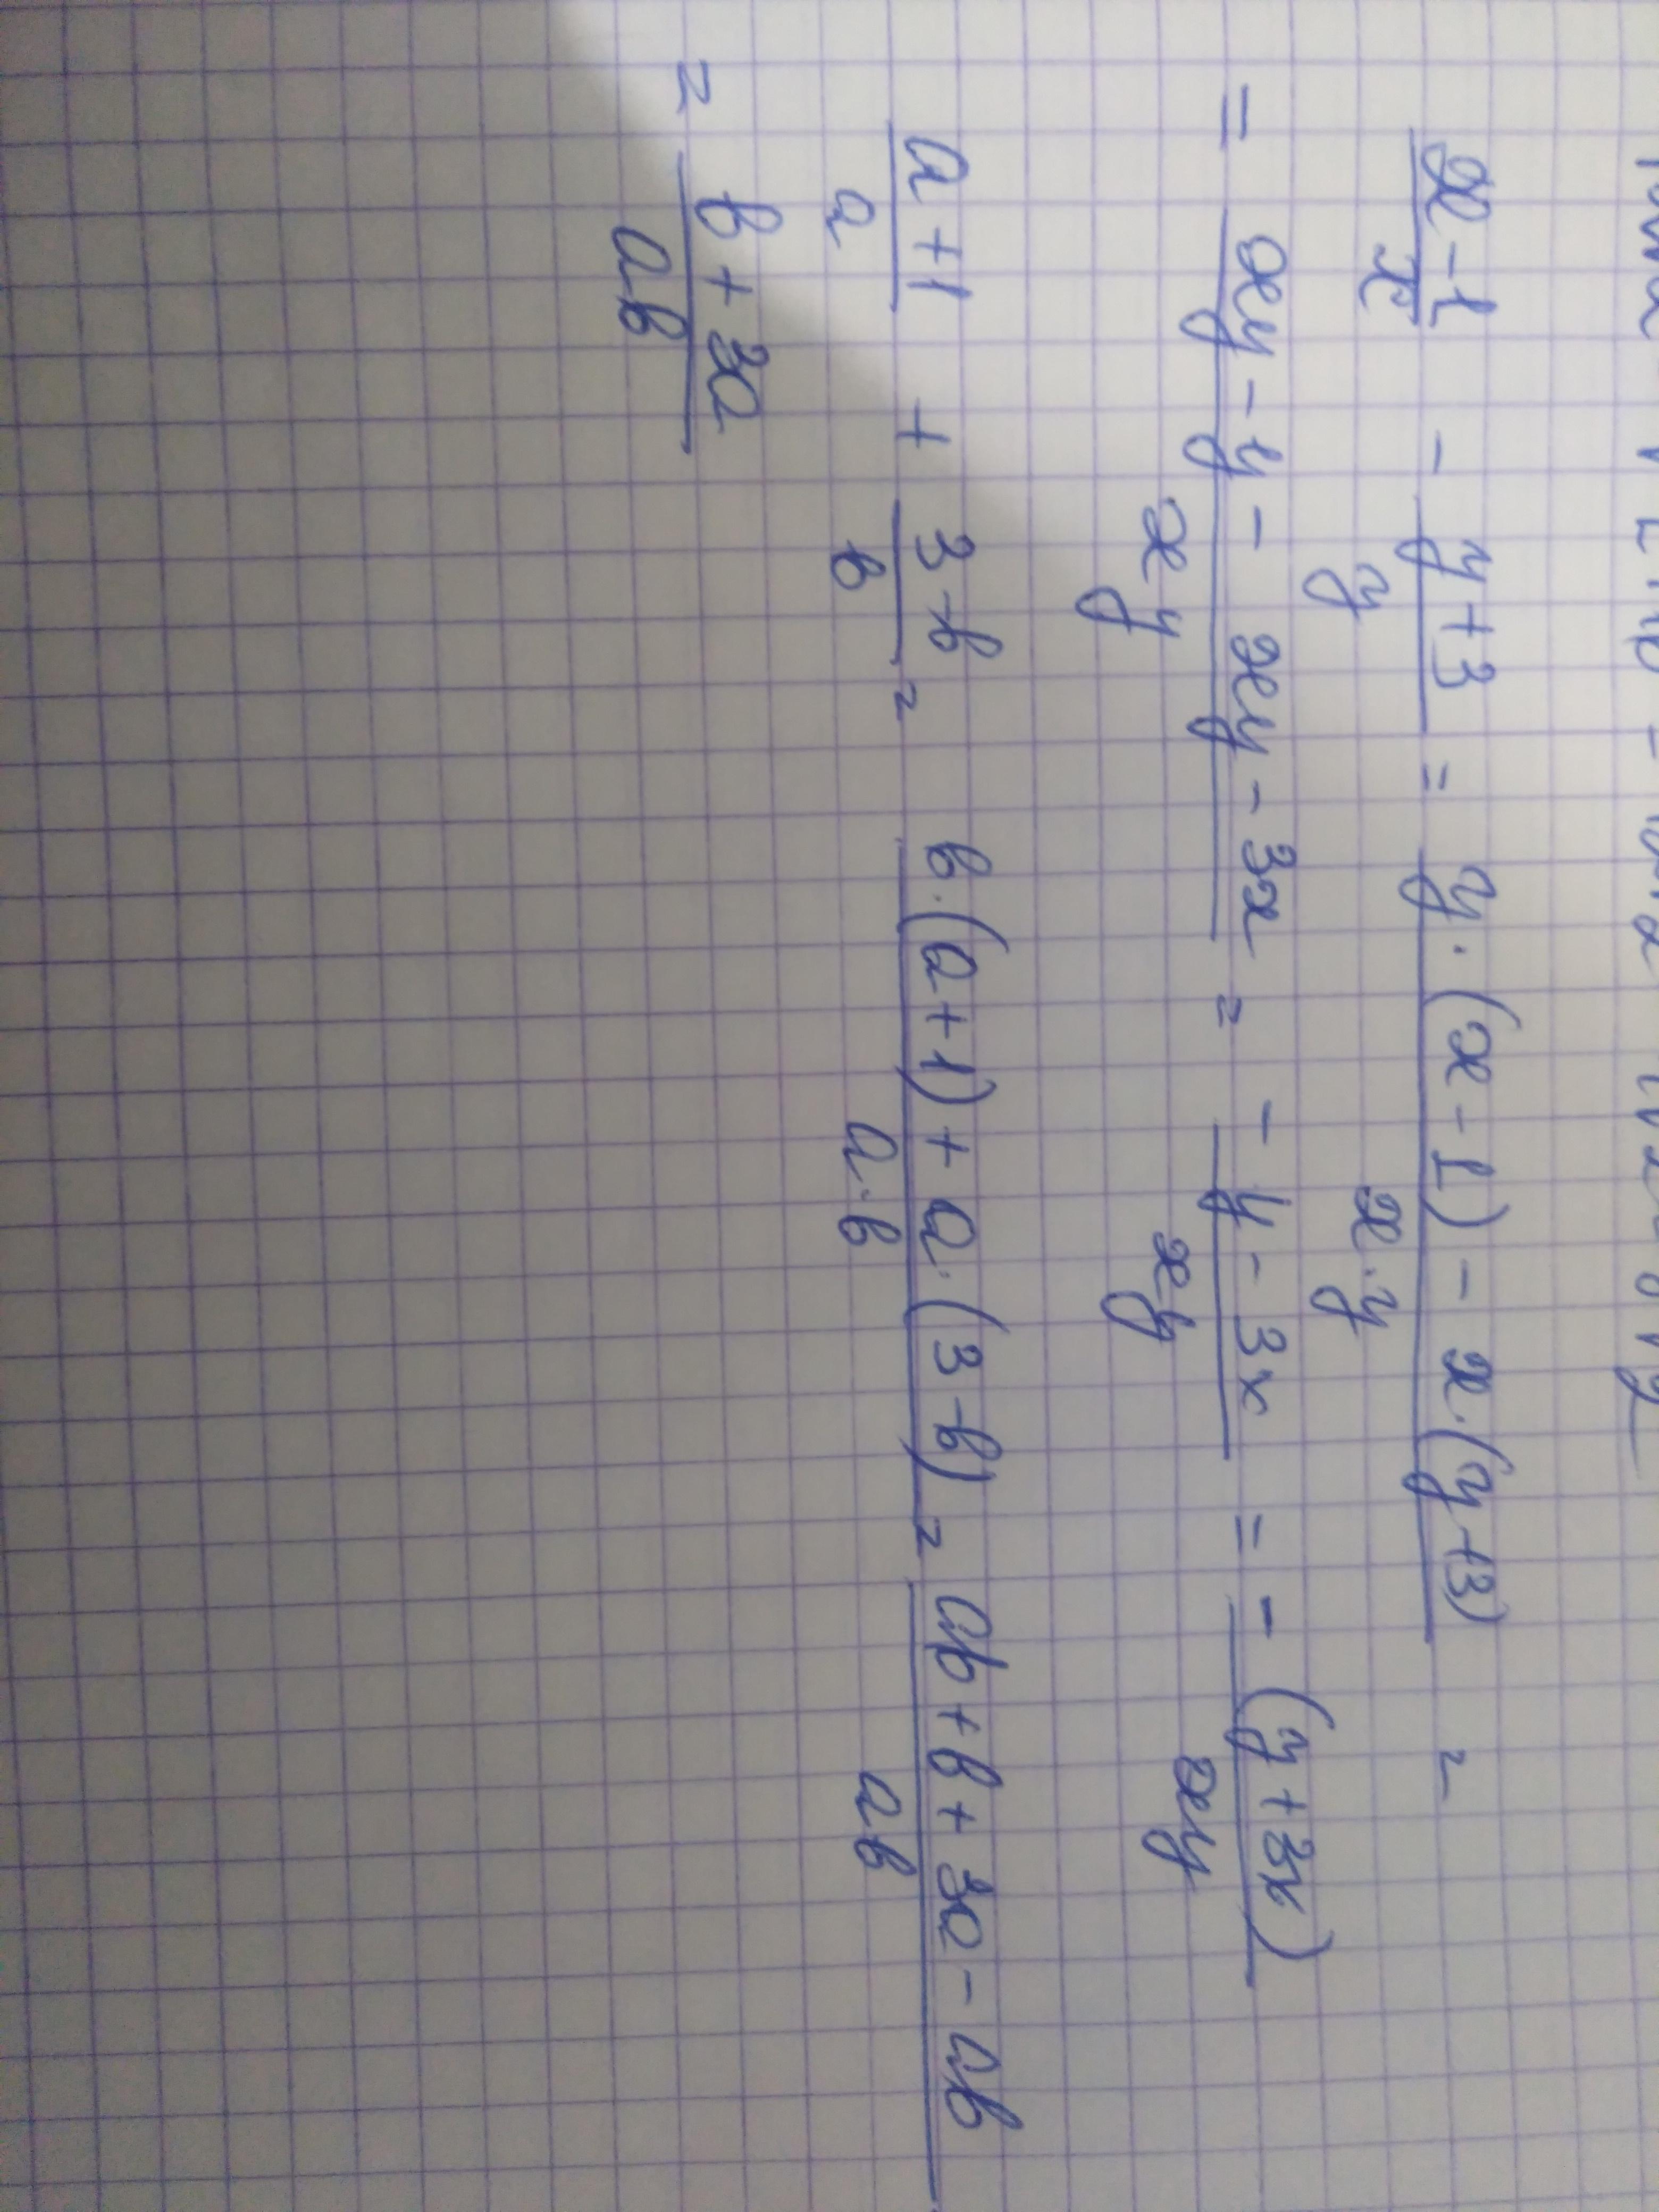 x-1/x - y+3/y = y·(x-1)-x·(y+3)/x·y =
= xy-y-xy-3x/xy = -y-3x/xy = -(y+3x)/xy
a+1/a + 3-b/b = b·(a+1)+a·(3-b)/a·b = ab+b+3a-ab/ab
= b+3a/ab